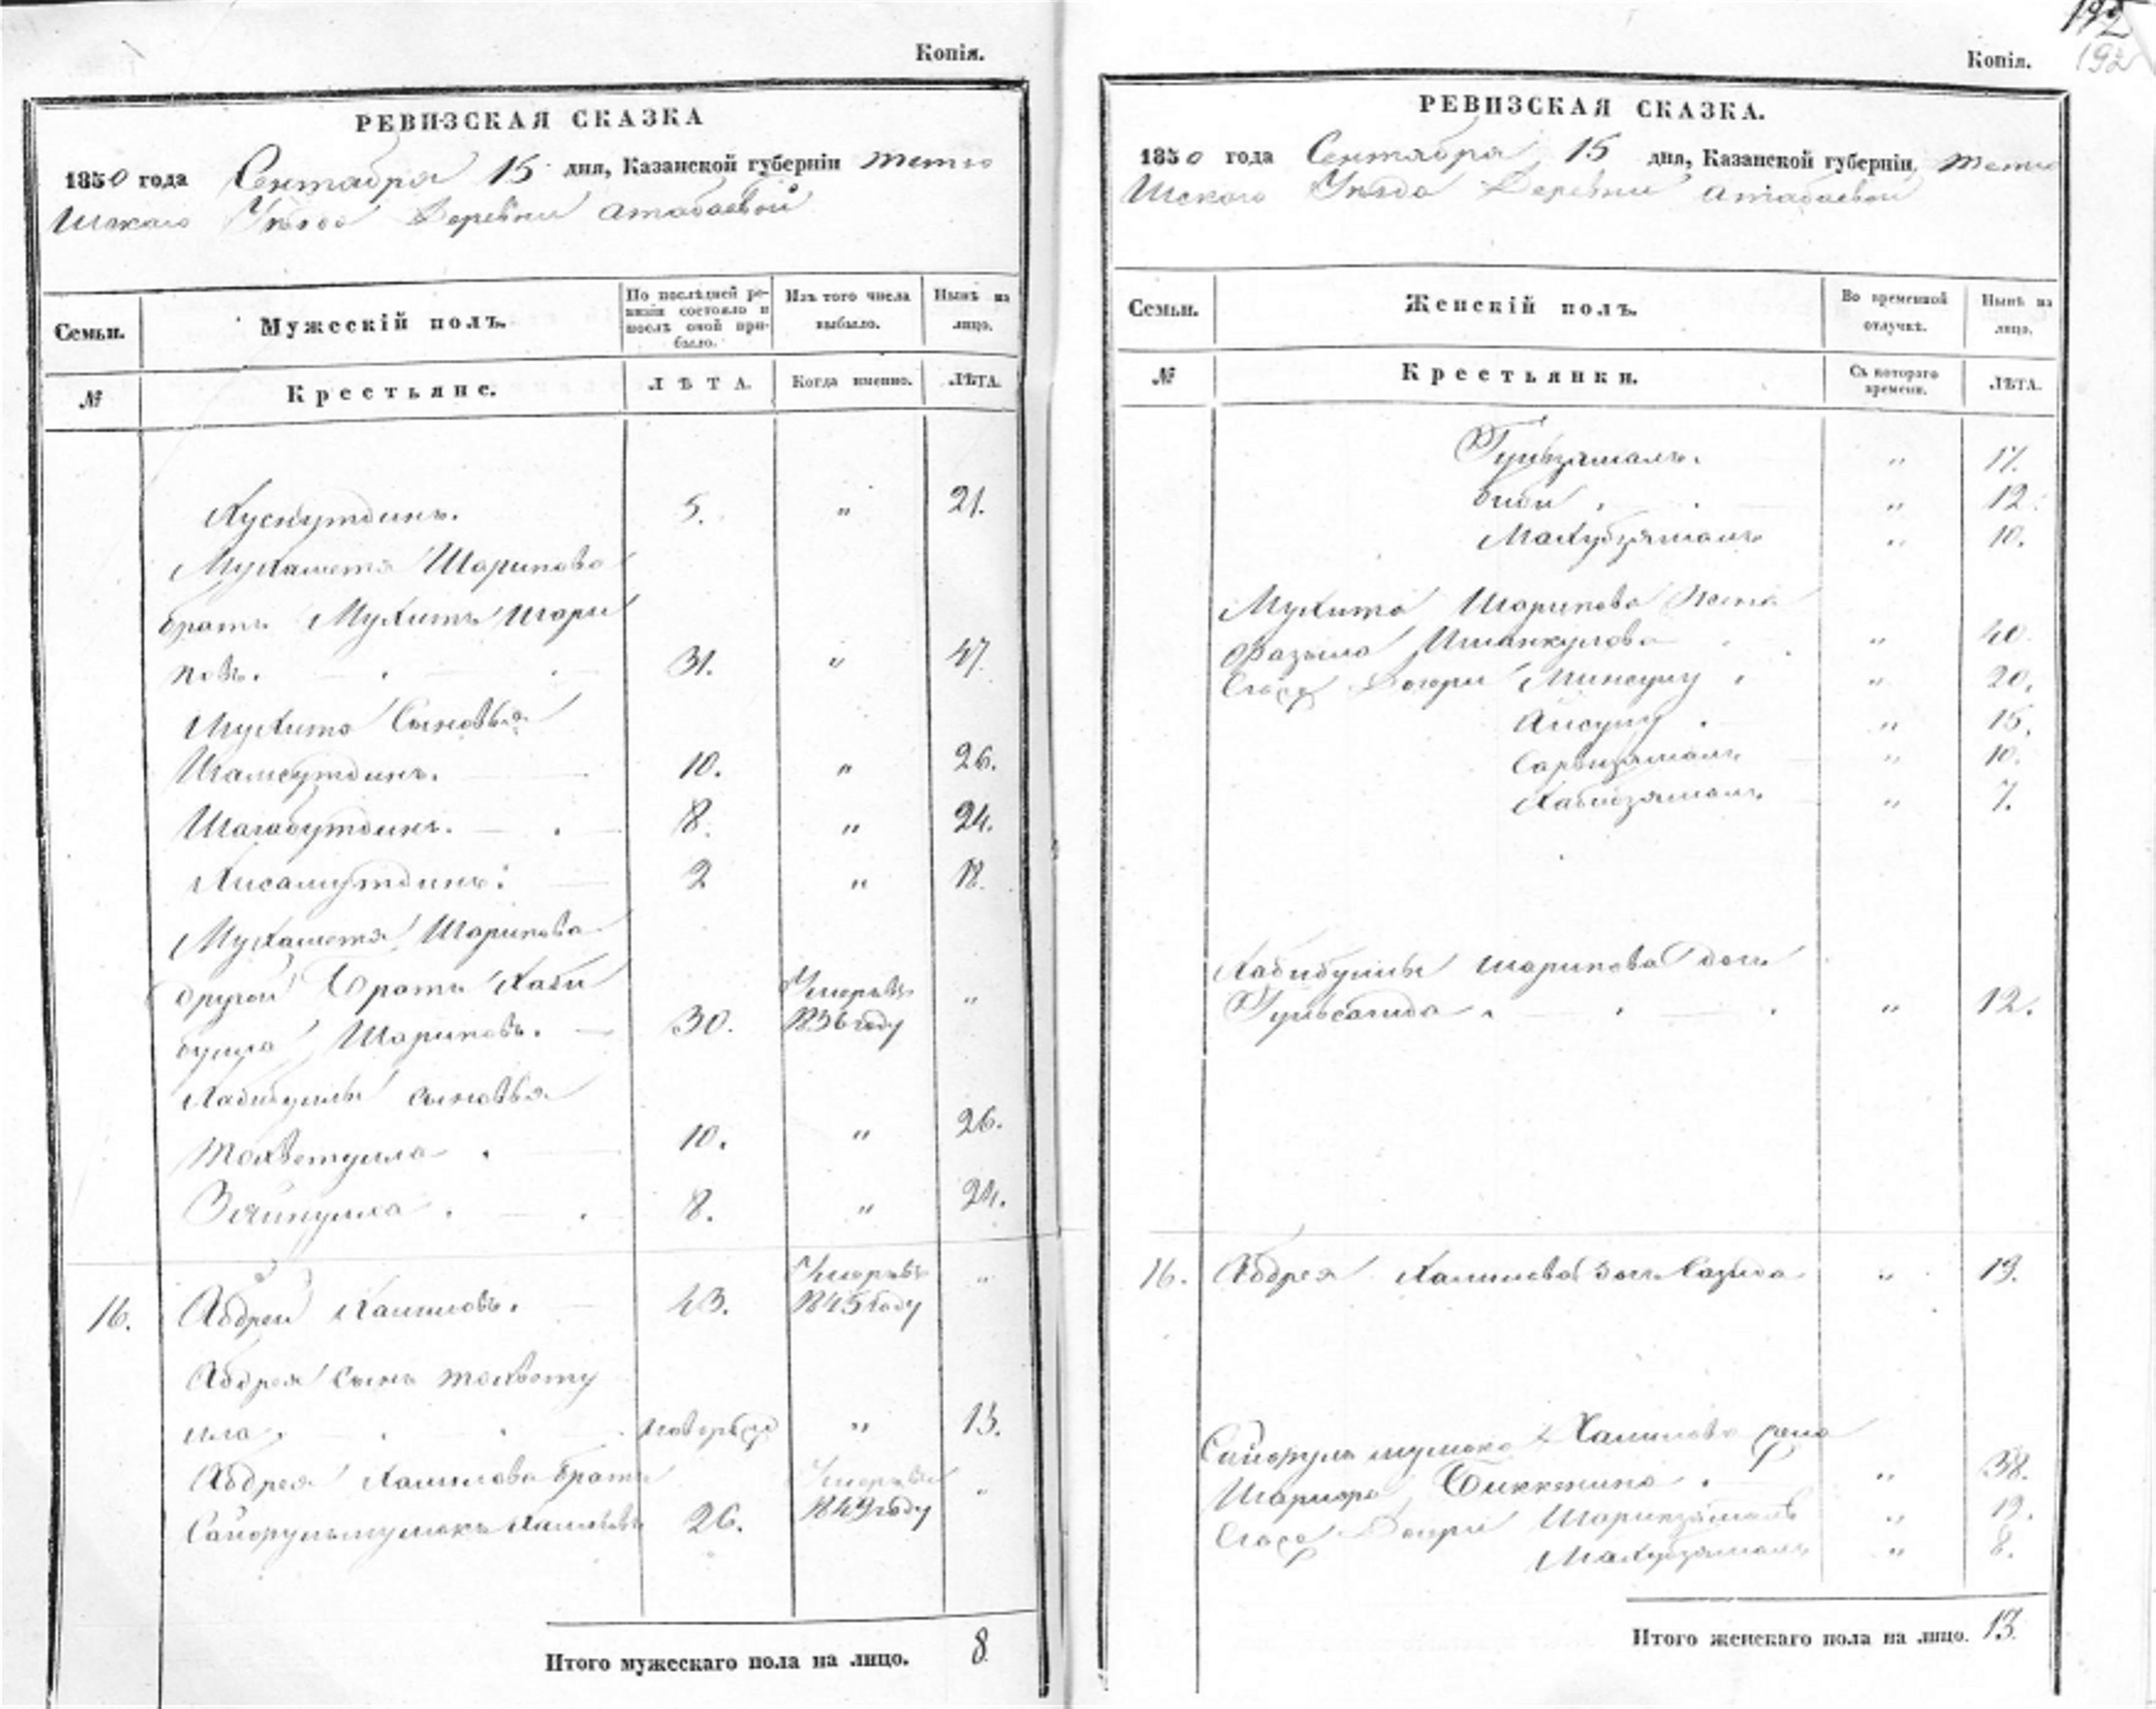 Копія.
РЕВИЗСКАЯ СКАЗКА
1850 года Сентября 15 дня, Казанской губерніи Тетю
шскаго Уѣзда Деревни Атабаевой
Семьи.
Мужескій полъ.
По послѣдней ре-
визіи состояло и
послѣ оной при-
было.
Изъ того числа
выбыло.
Нынѣ на
лицо.
№
Крестьяне.
ЛѢТА.
Когда именно.
ЛѢТА.
Хуснутдинъ. 5. " 21.
Мухаметя Шарипова
братъ Мухитъ Шари
повъ. 31. " 47.
Мухита Сыновья
Шамсутдинъ. 10. " 26.
Шагабутдинъ. 8. " 24.
Хисамутдинъ. 2 " 18.
Мухаметя Шарипова
другой Братъ Хаби
булла Шариповъ. 30. Умеръ въ 1836 году "
Хабибуллы сыновья
Тохветулла. 10. " 26.
Зяйнулла. 8. " 24.
16. Абдрей Халиловъ. 43. Умеръ въ 1845 году "
Абдрея сынъ Тохвету
лла. новорожд " 13.
Абдрея Халилова братъ
26. Умеръ въ 1849 году "
Итого мужескаго пола на лицо. 8
192
192
Копія.
РЕВИЗСКАЯ СКАЗКА.
1850 года Сентября 15 дня, Казанской губерніи Тетю
шскаго Уѣзда Деревни Атабаевой
Семьи.
Женскій полъ.
Во временной
отлучкѣ.
Нынѣ на
лицо.
№
Крестьянки.
Съ котораго
времени.
ЛѢТА.
Гульзямалъ. " 17.
Биби. " 12.
Махубзямалъ " 10.
Мухита Шарипова жена
Фазыла Иманкулова " 40.
Его дочери Минсулу " 20.
Айсулу. " 15.
Сарвизямалъ " 10.
Хабизямалъ. " 7.
Хабибуллы Шарипова дочь
Гульсагида. " 12.
16. Абдрея Халилова дочь Сагида " 19.
Халилова жена
Биккенина. " 38.
Его дочери Шарипзямалъ " 19.
Махубзямалъ " 8.
Итого женскаго пола на лицо. 13.